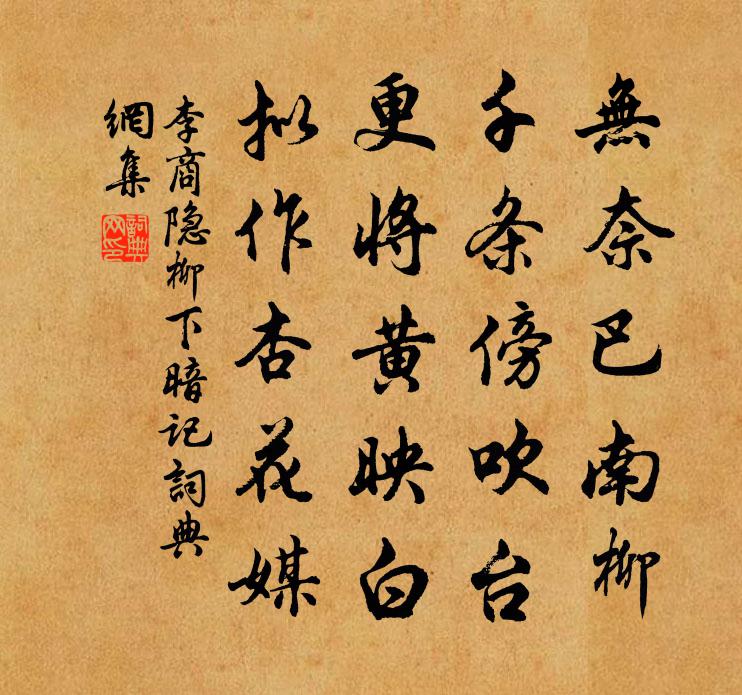 無奈巴南柳
千条傍吹台
更将黄映白
拟作杏花媒
李商隐柳下暗记詞典
網集
詞典
网印